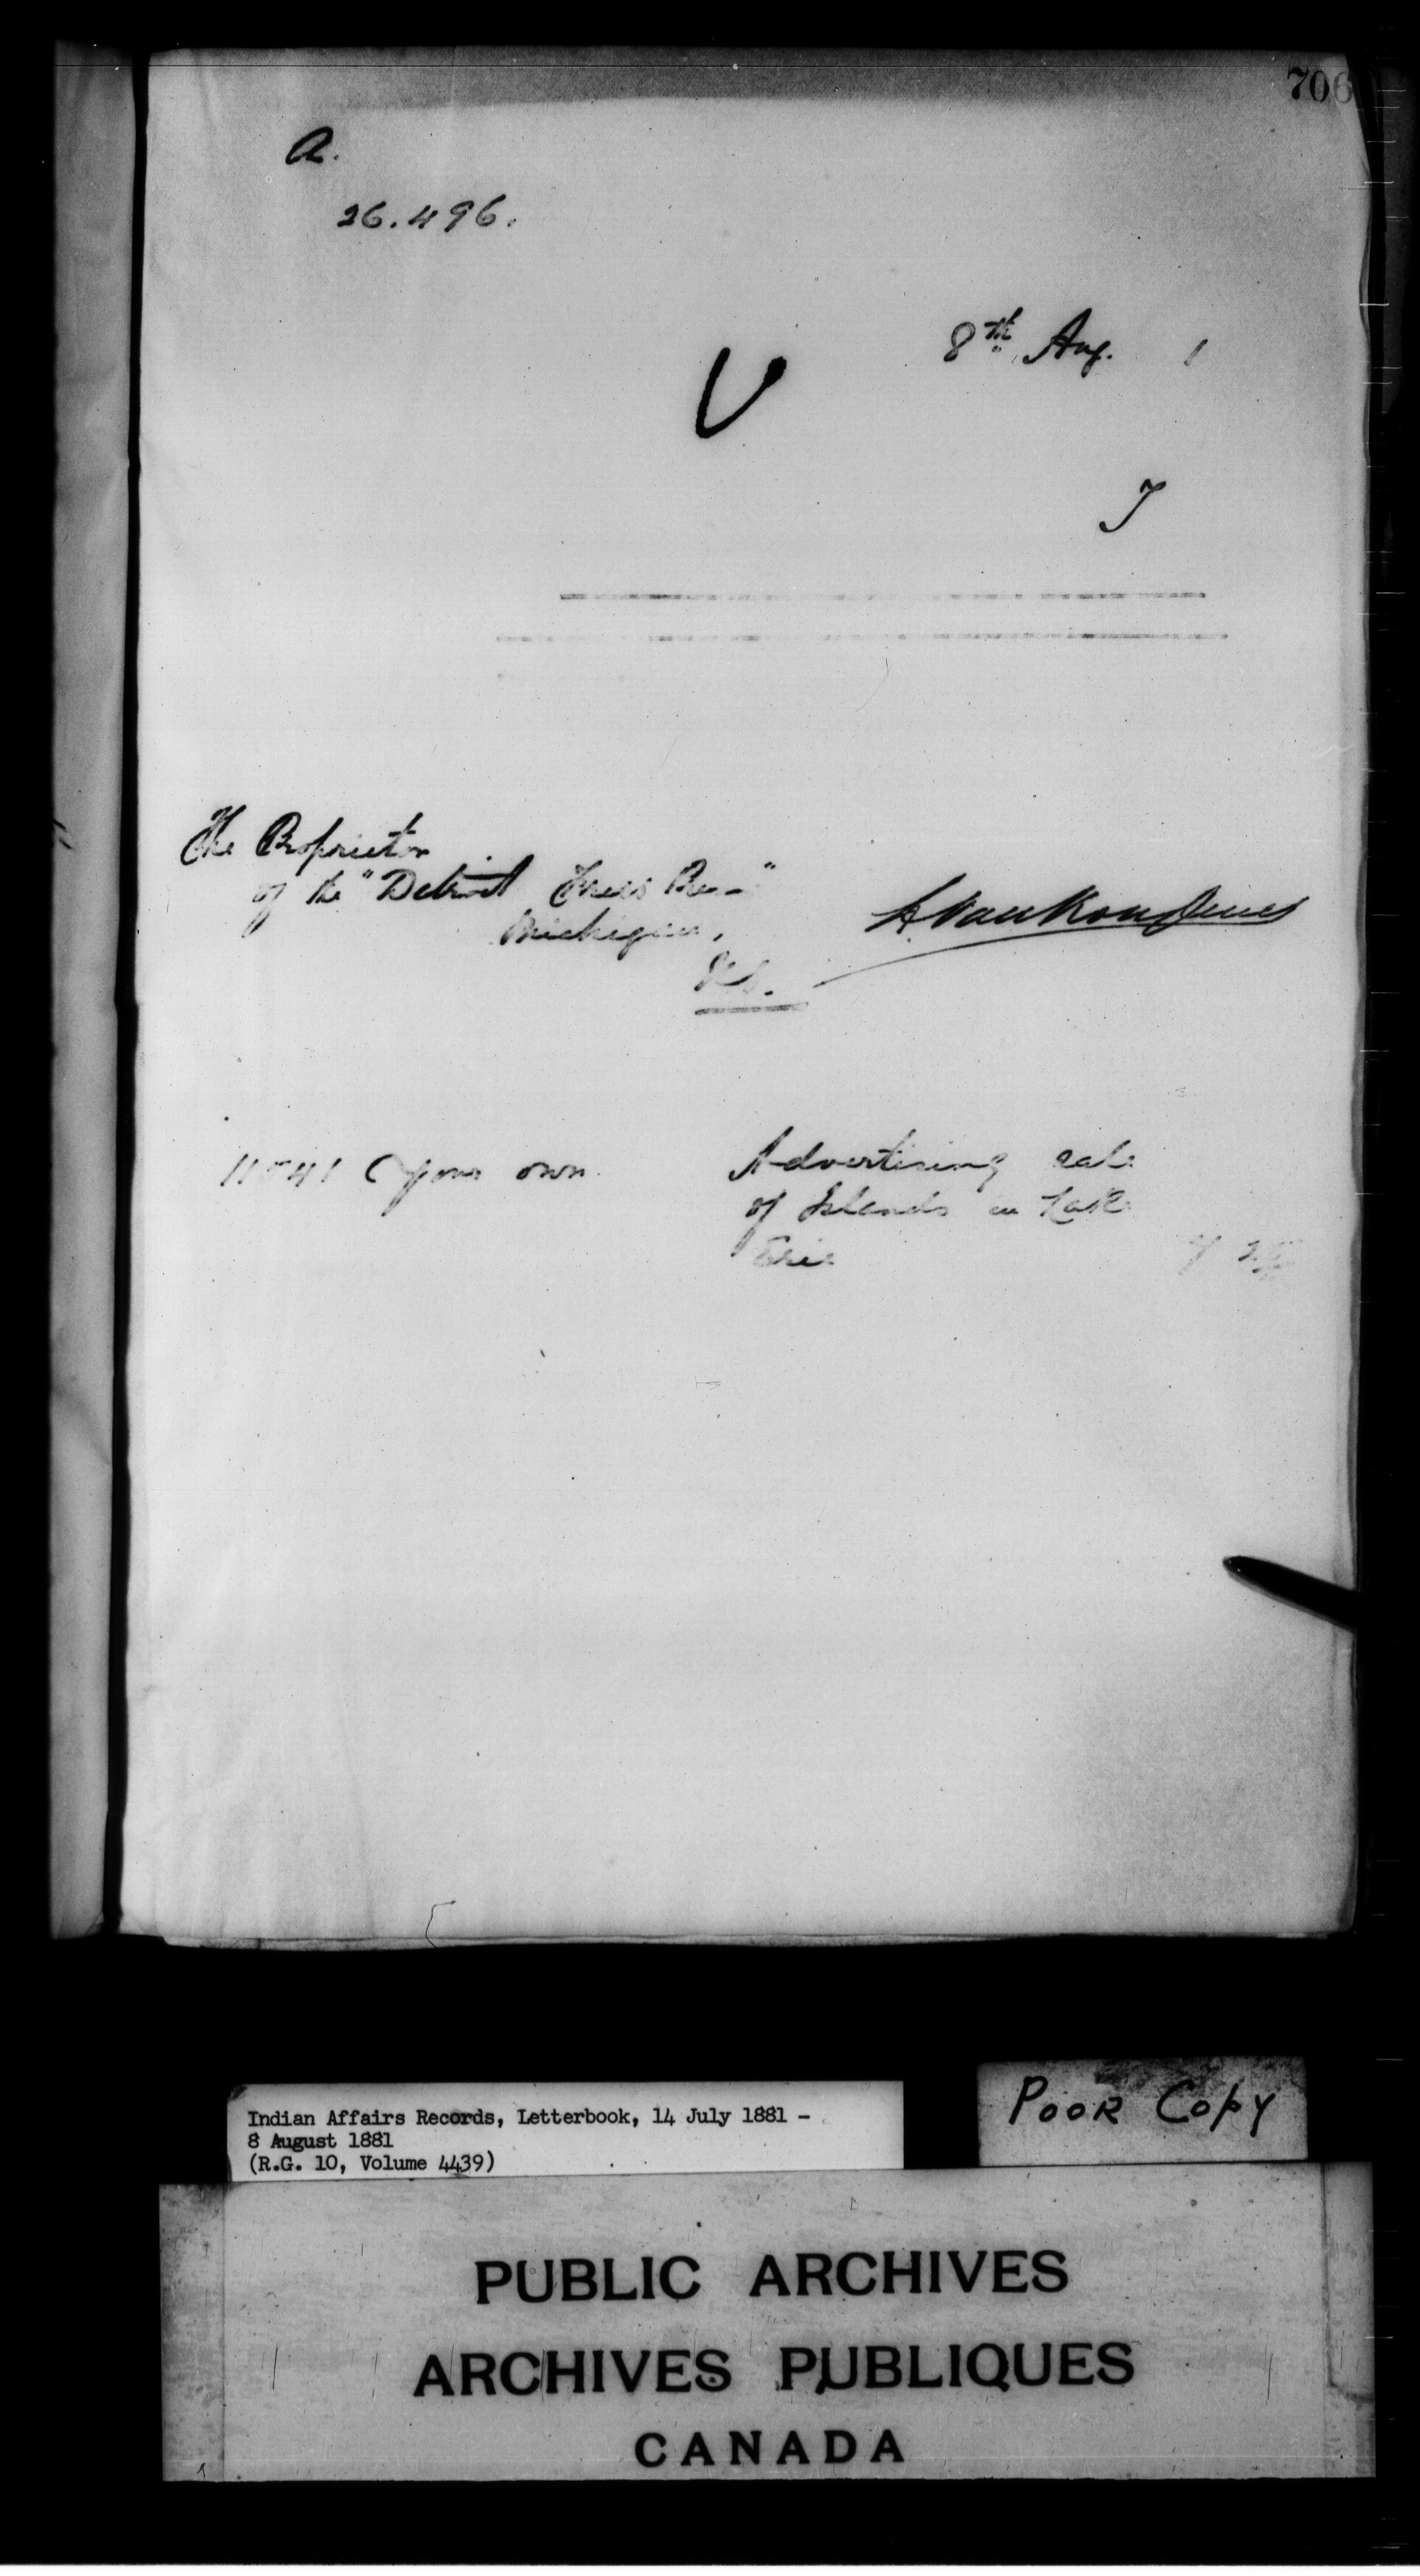 706
A.
26.496.
8th Aug. 1
The Proprietor
of the "Detroit Free Press"
Michigan,
U.S.
L. Vankoughnet
11541 your own
Advertising sale
of Islands in Lake
Erie
Indian Affairs Records, Letterbook, 14 July 1881 -
8 August 1881
(R.G. 10, Volume 4439)
POOR COPY
PUBLIC ARCHIVES
ARCHIVES PUBLIQUES
CANADA